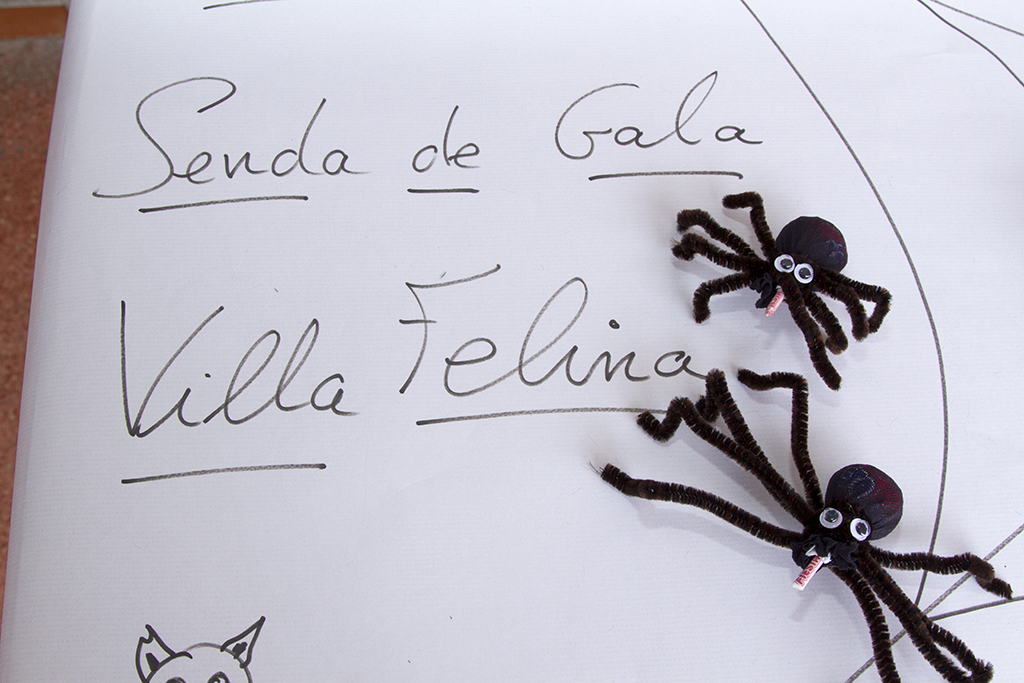 Senda de Gala
Villa Felina